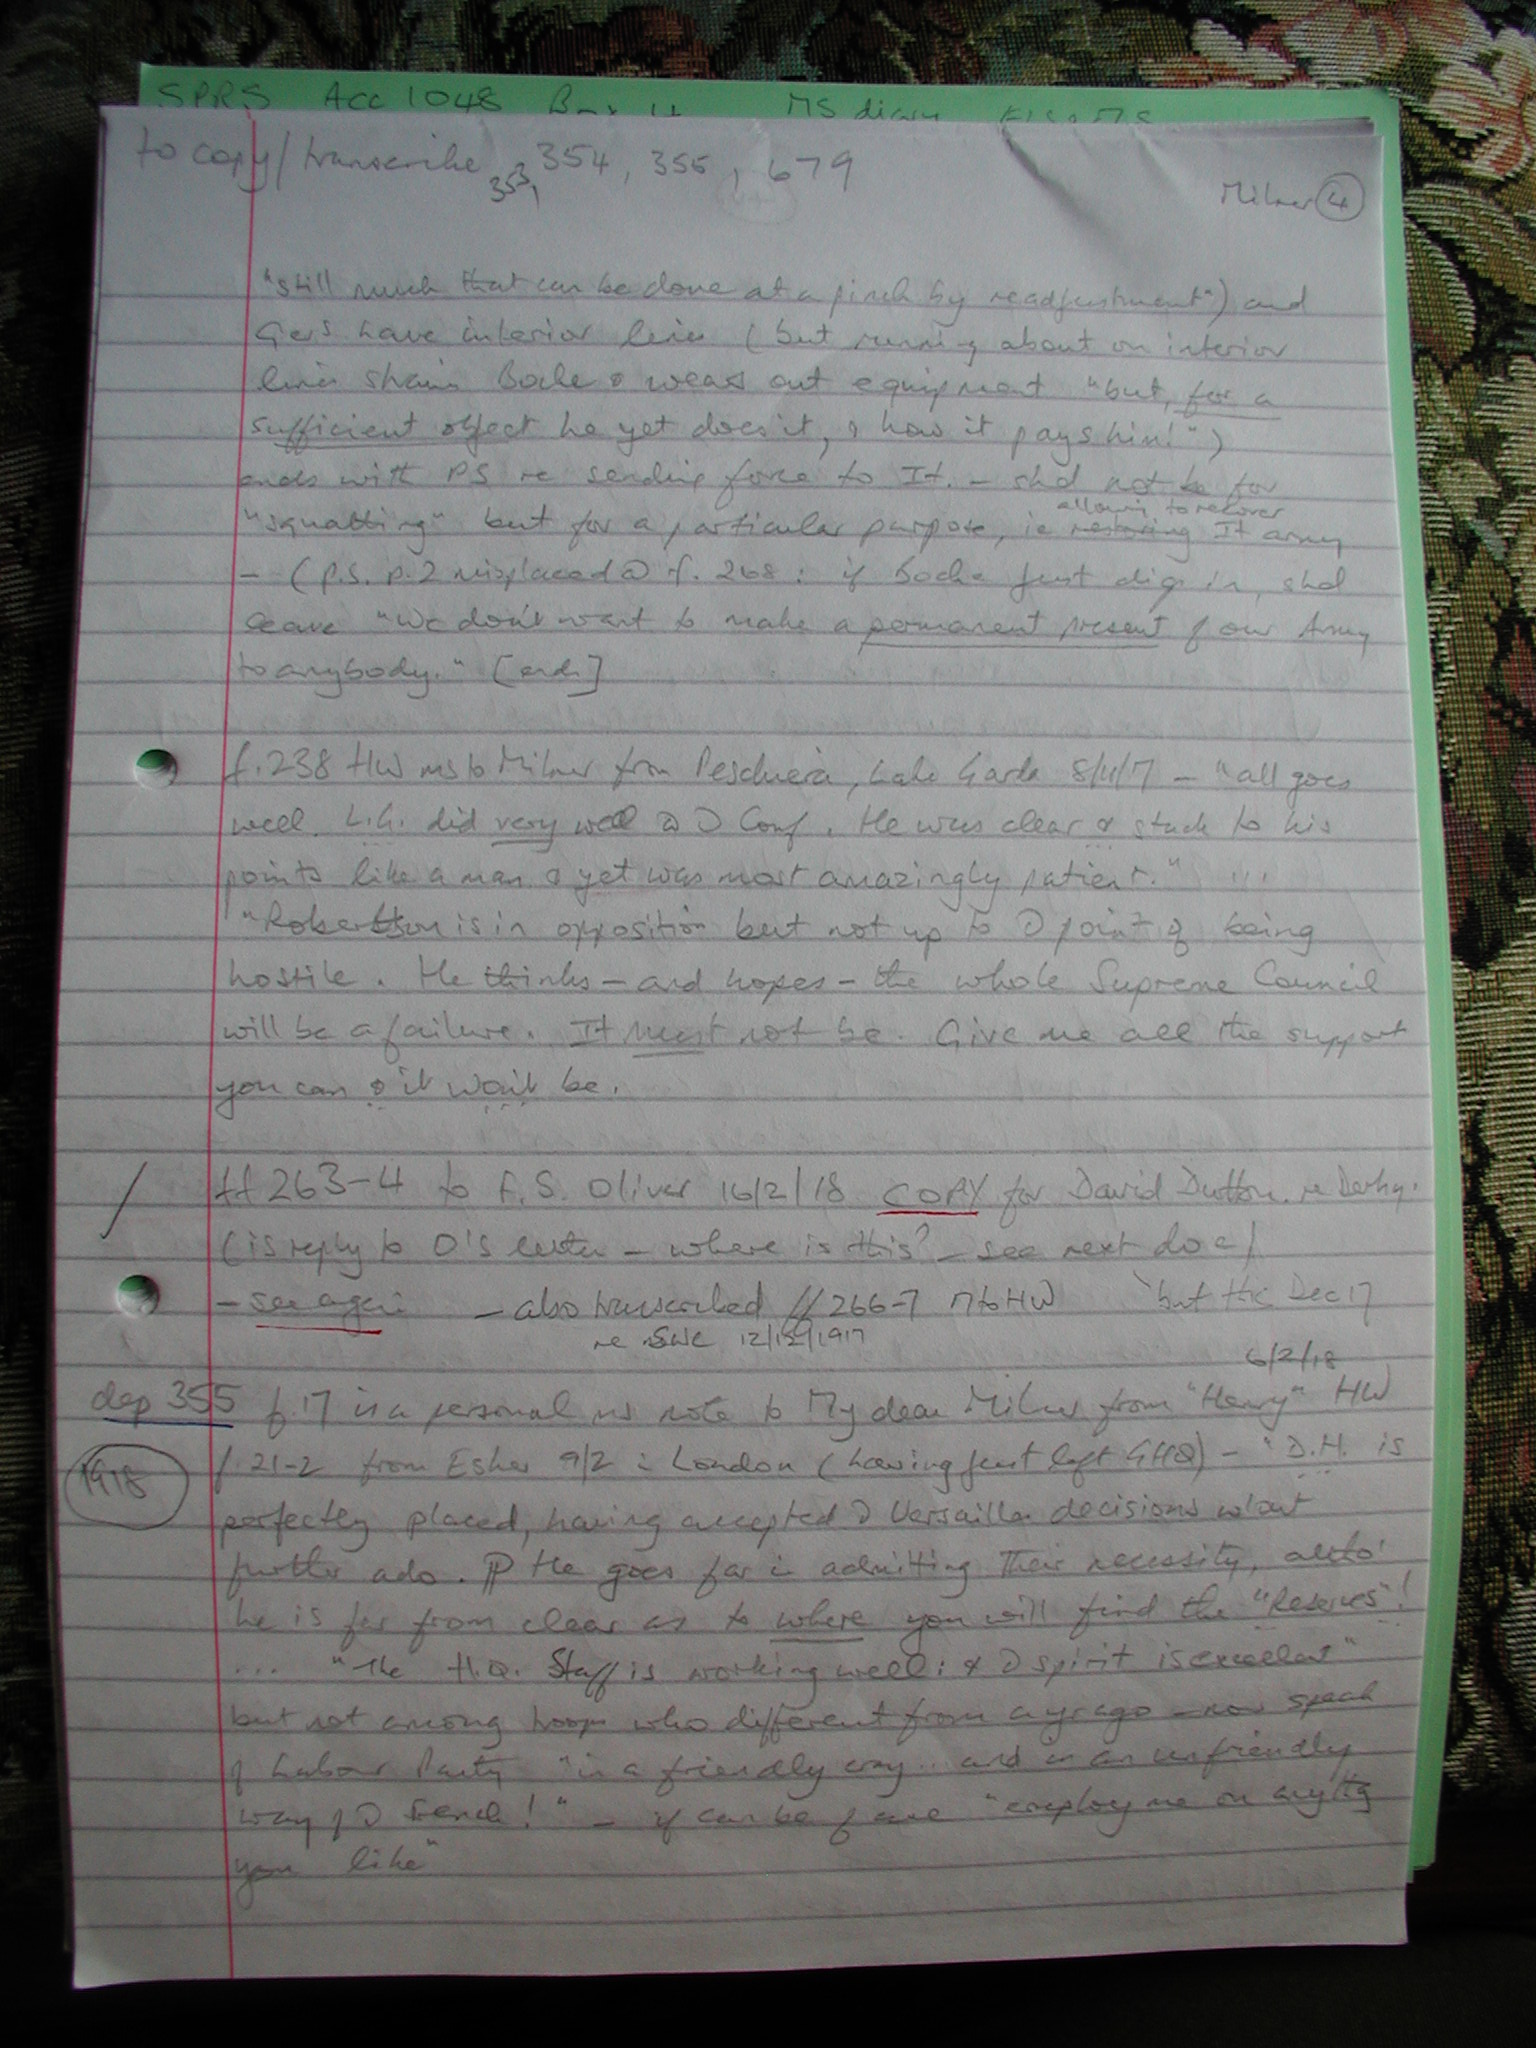 SPRS Acc 1048 MS diary
to copy/transcribe 353, 354, 355, 679
Milner 4
"still much that can be done at a pinch by readjustment") and
Gers have interior lines (but running about on interior
lines strains Boche & wears out equipment "but, for a
sufficient object he yet does it, & how it pays him!")
ends with PS re sending force to It. - shd not be for
allowing to recover
"squatting" but for a particular purpose, ie restoring It army
- (P.S. p.2 misplaced @ f. 268: if Boche just digs in, shd
leave "We don't want to make a permanent present of our Army
to anybody." [ends]
f.238 HW ms to Milner from Peschiera, Lake Garda 8/11/7 - "all goes
well. L.G. did very well @ Conf. He was clear & stuck to his
points like a man & yet was most amazingly patient." ...
"Robertson is in opposition but not up to point of being
hostile. He thinks - and hopes - the whole Supreme Council
will be a failure. It must not be. Give me all the support
you can & it won't be.
/ ff 263-4 to F.S. Oliver 16/2/18 COPY for David Dutton re Derby.
(is reply to O's letter - where is this? - see next doc /
- see again - also transcribed ff 266-7 M to HW but this Dec 17
re SWC 12/12/1917
6/2/18
dep 355 f.17 is a personal ms note to My dear Milner from "Henry" HW
1918
f.21-2 from Esher 9/2 in London (having just left GHQ) - "D.H. is
perfectly placed, having accepted Versailles decisions w'out
further ado. He goes far in admitting their necessity, altho'
he is far from clear as to where you will find the "Reserves"!
... "The H.Q. Staff is working well: & spirit is excellent"
but not among troops who different from a yr ago - now speak
of Labour Party "in a friendly way .. and in an unfriendly
way of French!" - if can be of use "employ me on anything
you like"